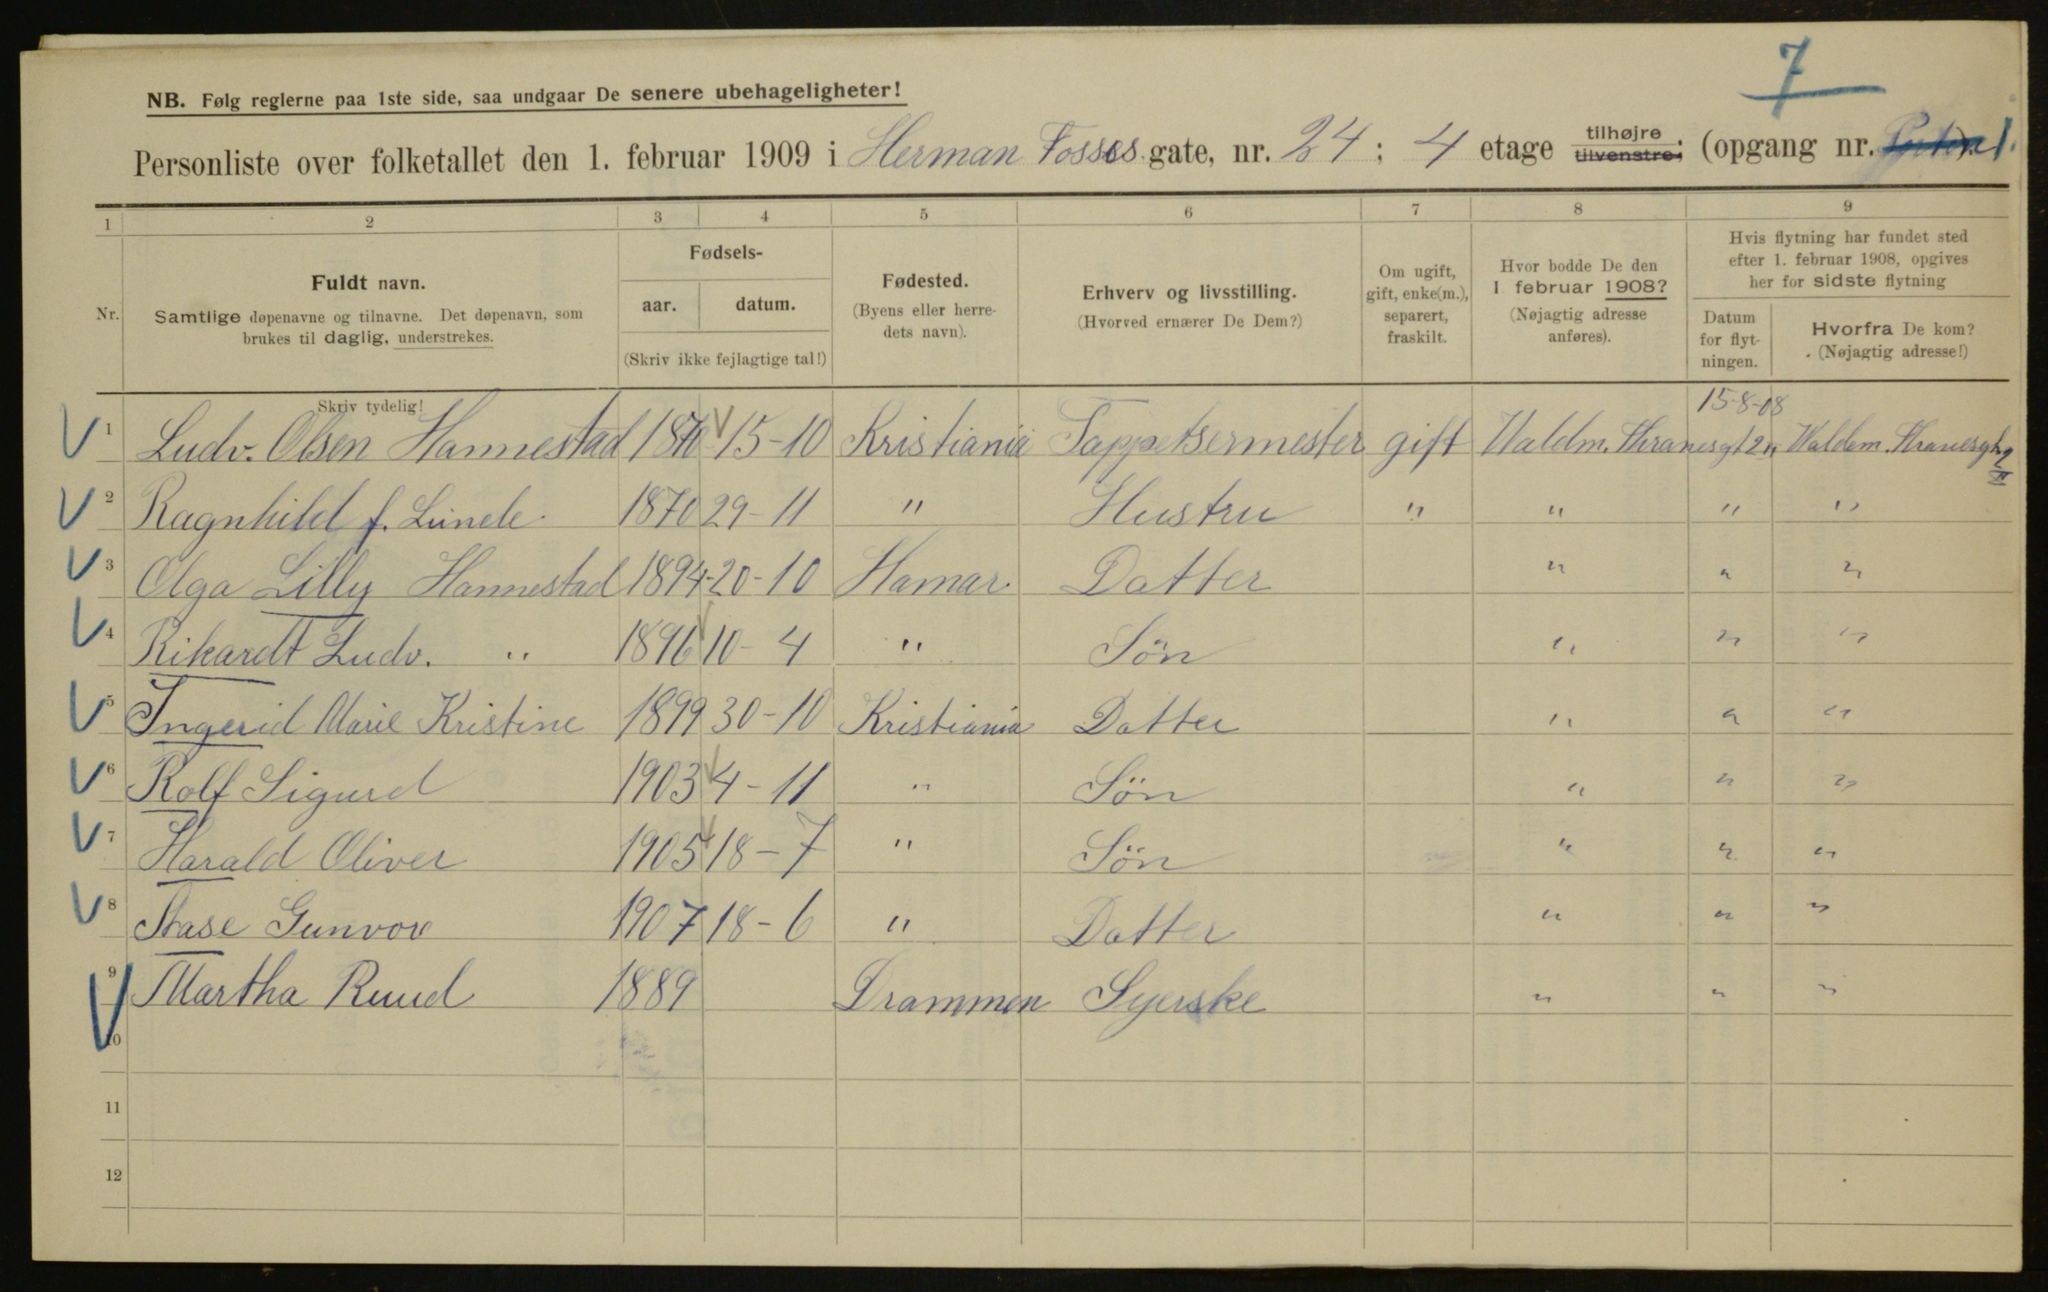 7
NB. Følg reglerne paa 1ste side, saa undgaar De senere ubehageligheter!
Personliste over folketallet den 1. februar 1909 i Herman Fosses gate, nr. 24; 4 etage tilhøjre tilvenstre; (opgang nr. 1.
1 2 3 4 5 6 7 8 9
Nr. Fuldt navn. Samtlige døpenavne og tilnavne. Det døpenavn, som brukes til daglig, understrekes. Skriv tydelig!
Fødsels- aar. datum. (Skriv ikke fejlagtige tal!)
Fødested. (Byens eller herredets navn).
Erhverv og livsstilling. (Hvorved ernærer De Dem?)
Om ugift, gift, enke(m.), separert, fraskilt.
Hvor bodde De den 1 februar 1908? (Nøjagtig adresse anføres).
Hvis flytning har fundet sted efter 1. februar 1908, opgives her for sidste flytning
Datum for flytningen.
Hvorfra De kom? (Nøjagtig adresse!)
15-8-08
1 Ludv. Olsen Hannestad 1870 15-10 Kristiania Tappetsermester gift Waldm. Thranesgt 2 II Waldem. Thranesgt 2 II
2 Ragnhild f. Lunde. 1870 29-11 " Hustru " " " "
3 Olga Lilly Hannestad 1894-20-10 Hamar. Datter " " "
4 Rikardt Ludv. " 1896 10-4 " Sön " " "
5 Ingerid Marie Kristine 1899 30-10 Kristiania Datter " " "
6 Rolf Sigurd 1903 4-11 " Sön " " "
7 Harald Oliver 1905 18-7 " Sön " " "
8 Aase Gunvor 1907 18-6 " Datter " " "
9 Martha Ruud 1889 Drammen Syerske " " "
10
11
12